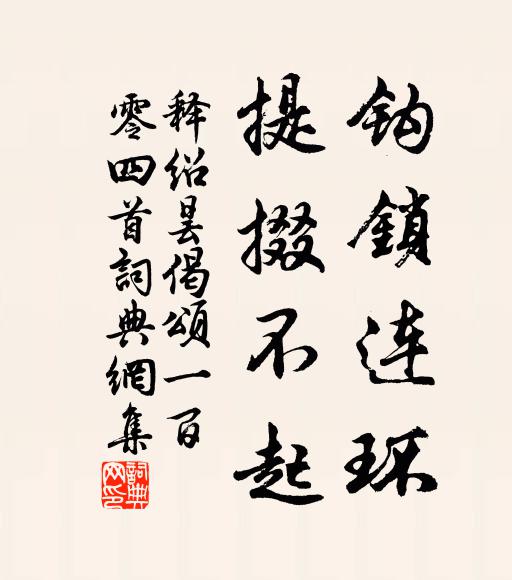 钩鎖连环
提掇不起
释绍昙偈頌一百
零四首詞典網集
詞典网印